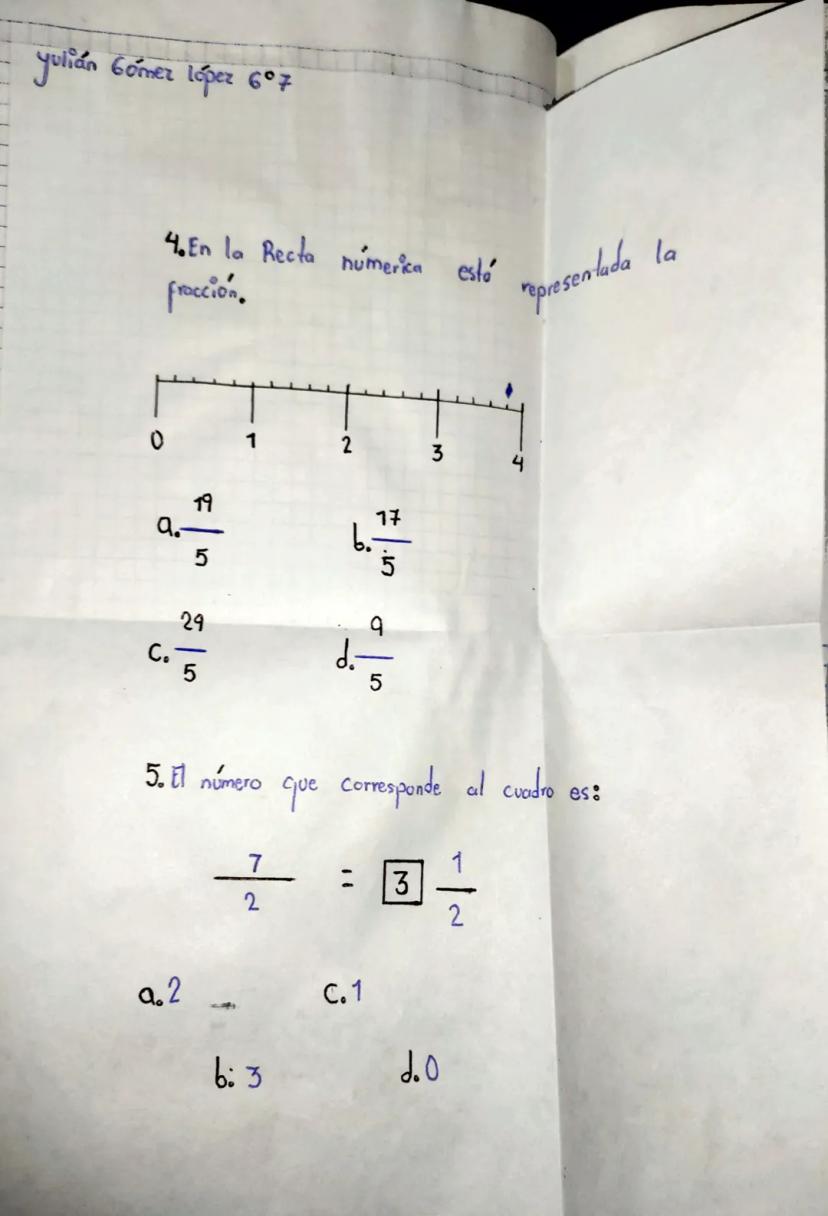 yulián Gómez lópez 6°7
4. En la Recta númerica está representada la
fracción.
0 1 2 3 4
a. 19/5 b. 17/5
c. 29/5 d. 9/5
5. El número que corresponde al cuadro es:
7/2 = 3 1/2
a. 2 c. 1
b: 3 d. 0